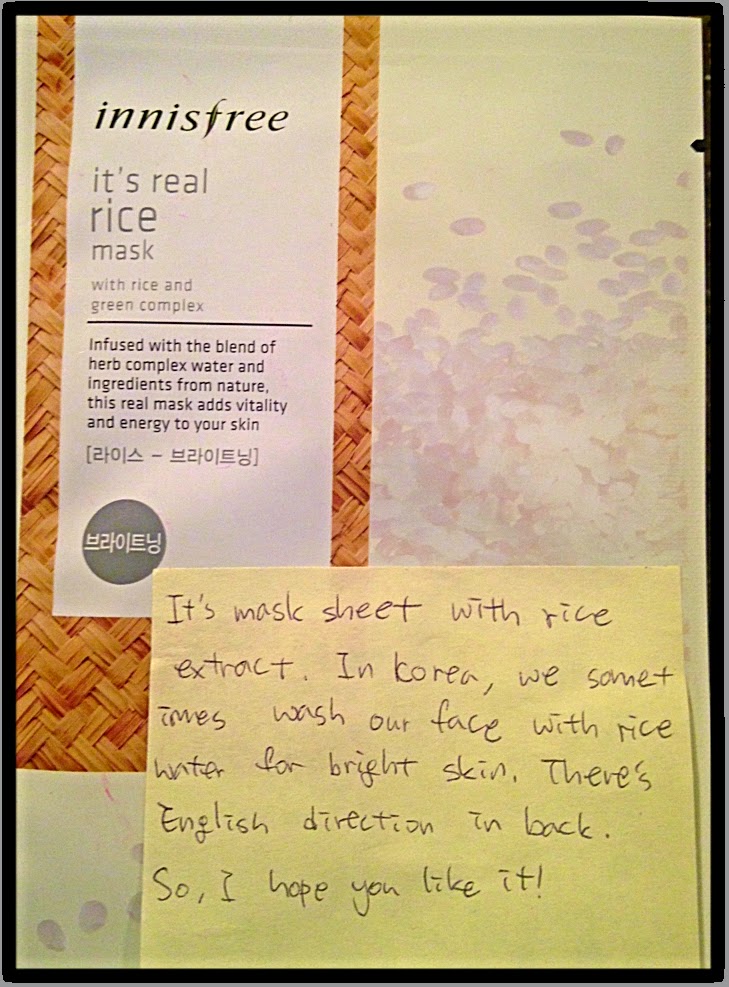 innisfree
it's real
rice
mask
with rice and
green complex
Infused with the blend of
herb complex water and
ingredients from nature,
this real mask adds vitality
and energy to your skin
[라이스 - 브라이트닝]
브라이트닝
It's mask sheet with rice
extract. In korea, we somet
imes wash our face with rice
water for bright skin. There's
English direction in back.
So, I hope you like it!